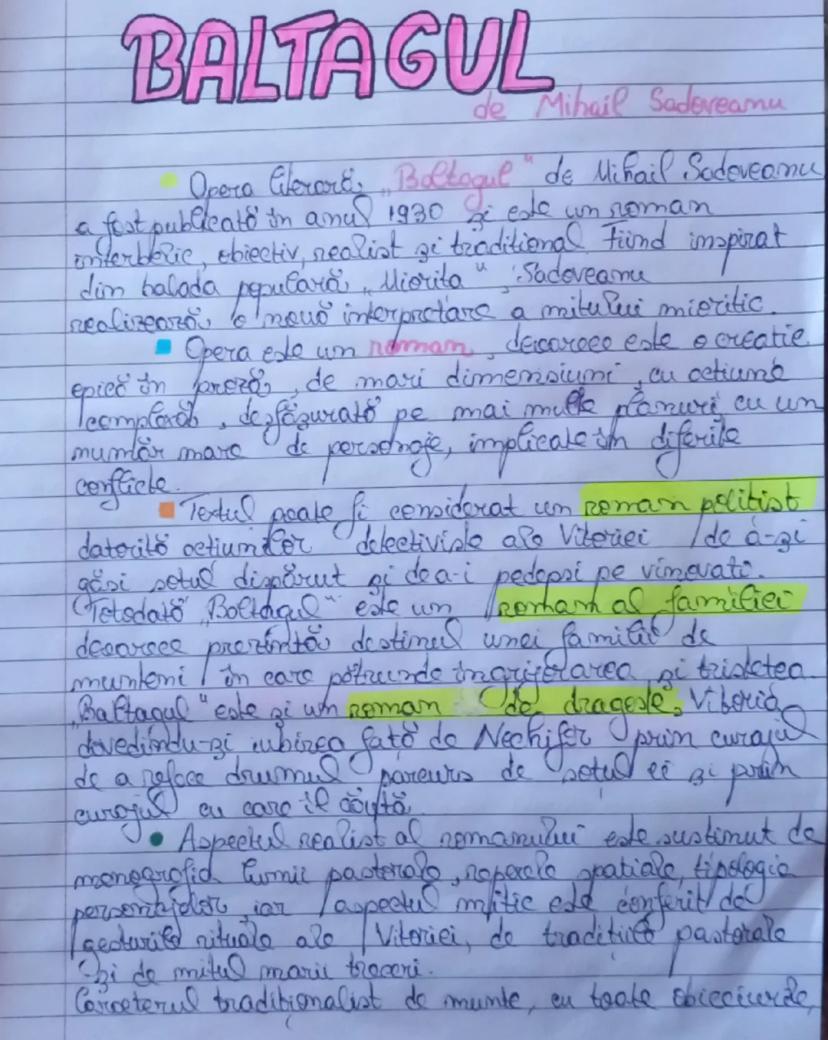 BALTAGUL
de Mihail Sadoveanu
Opera literară, „Baltagul" de Mihail Sadoveanu
a fost publicată în anul 1930 și este un roman
interbelic, obiectiv, realist și traditional. Fiind inspirat
din balada populară, „Miorita", Sadoveanu
realizează, o nouă interpretare a mitului mioritic.
Opera este un roman, deoarece este o creatie
epică în proză, de mari dimensiuni, cu actiune
complexă, desfășurată pe mai multe planuri, cu un
număr mare de personaje, implicate în diferite
conflicte.
Textul poate fi considerat un roman politist
datorită actiunilor detectiviste ale Vitoriei de a-și
găsi sotul dispărut și de a-i pedepsi pe vinovati.
Totodată „Baltagul" este un roman al familiei
deoarece prezintă destinul unei familii de
munteni în care pătrunde îngrijorarea și tristetea.
„Baltagul" este și un roman de dragoste, Vitoria
dovedindu-și iubirea față de Nechifor prin curajul
de a reface drumul parcurs de sotul ei și prin
curajul cu care îl caută.
Aspectul realist al romanului este sustinut de
monografia lumii pastorale, reperele spatiale, tipologia
personajelor, iar aspectul mitic este conferit de
gesturile rituale ale Vitoriei, de traditiile pastorale
și de mitul marii treceri.
Caracterul traditionalist de munte, cu toate obieciurile,